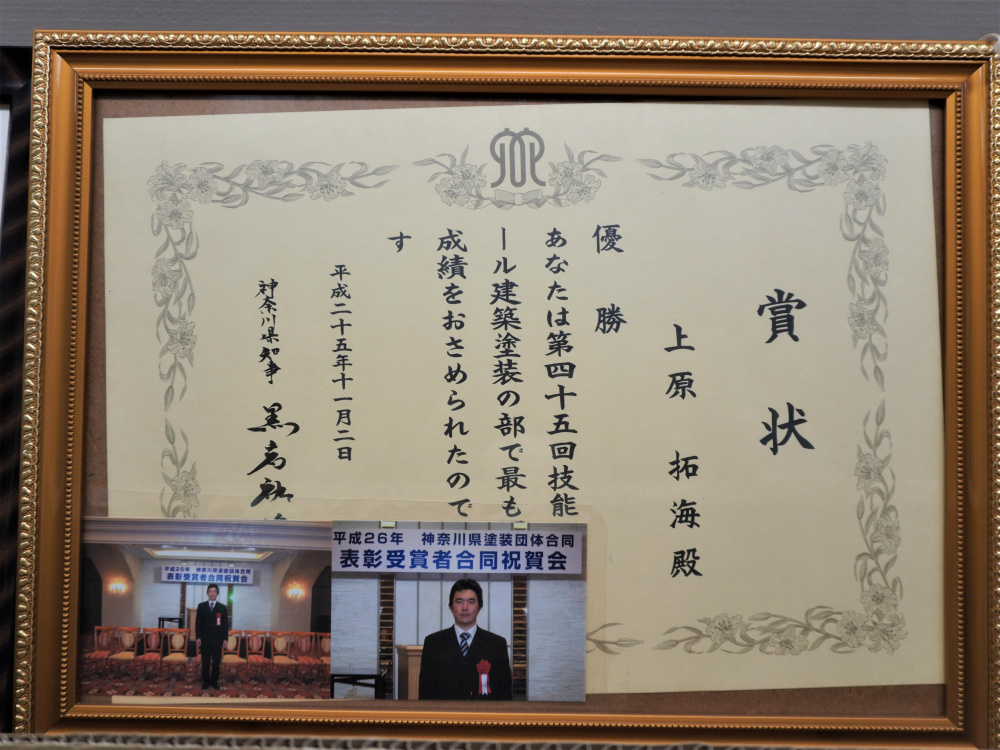 賞状
上原 拓海 殿
優勝
あなたは第四十五回技能
ール建築塗装の部で最も
成績をおさめられたので
す
平成二十五年十一月二日
神奈川県知事 黒岩祐
平成26年 神奈川県塗装団体合同
表彰受賞者合同祝賀会
平成26年 神奈川県塗装団体合同
表彰受賞者合同祝賀会